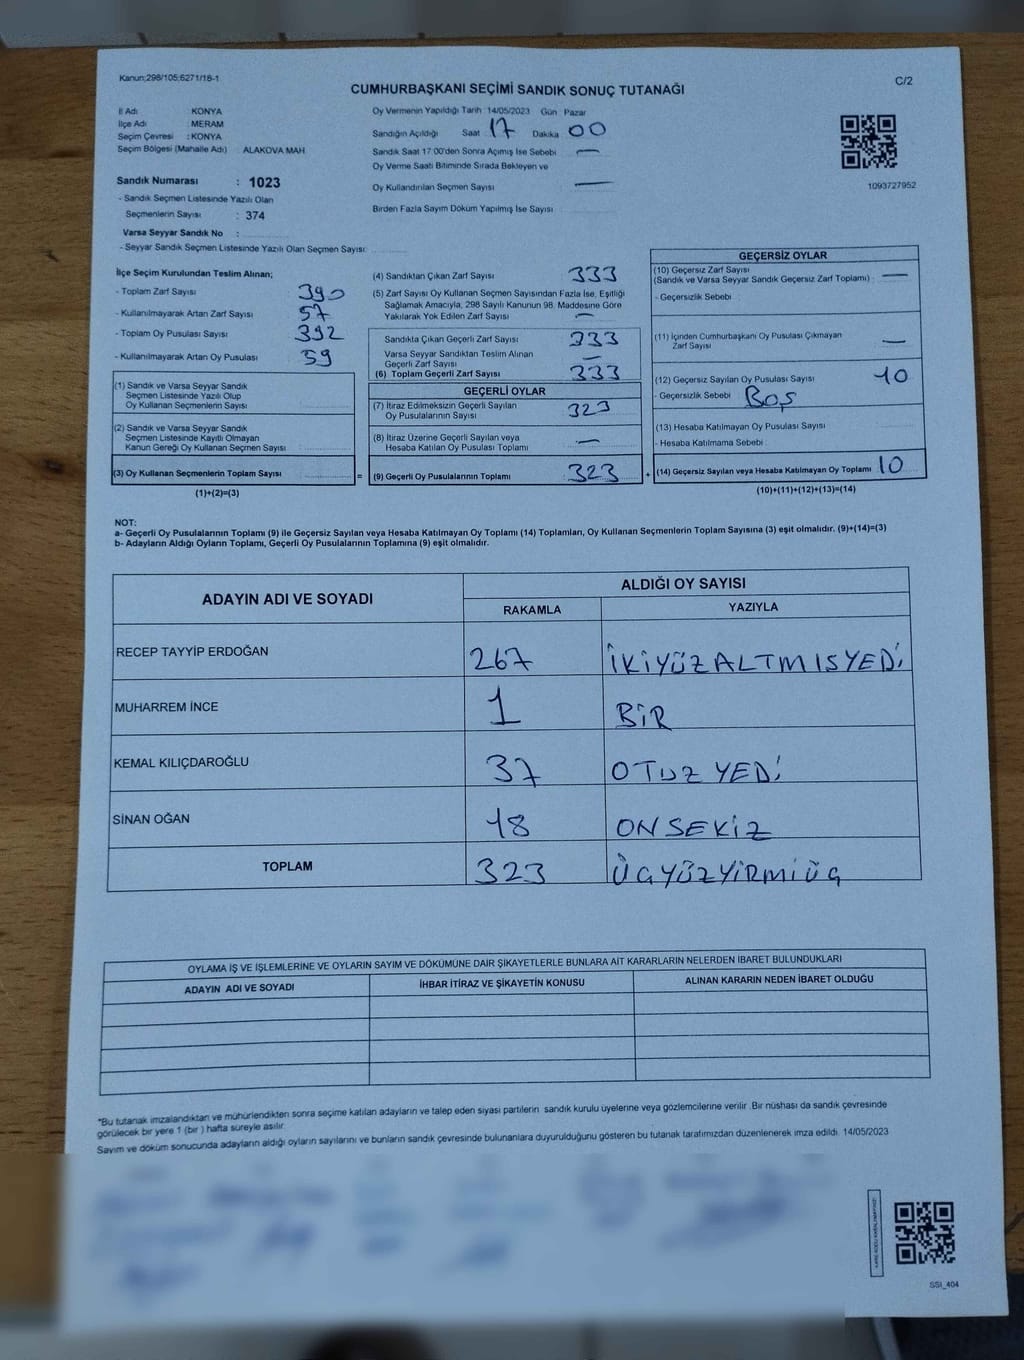 Kanun:298/105;6271/18-1
CUMHURBAŞKANI SEÇİMİ SANDIK SONUÇ TUTANAĞI
C/2
İl Adı : KONYA
İlçe Adı : MERAM
Seçim Çevresi : KONYA
Seçim Bölgesi (Mahalle Adı) : ALAKOVA MAH
Sandık Numarası : 1023
- Sandık Seçmen Listesinde Yazılı Olan
Seçmenlerin Sayısı : 374
Varsa Seyyar Sandık No :
- Seyyar Sandık Seçmen Listesinde Yazılı Olan Seçmen Sayısı:
Oy Vermenin Yapıldığı Tarih :14/05/2023 Gün Pazar
Sandığın Açıldığı Saat 17 Dakika 00
Sandık Saat 17:00'den Sonra Açımış İse Sebebi —
Oy Verme Saati Bitiminde Sırada Bekleyen ve
Oy Kullandırılan Seçmen Sayısı —
Birden Fazla Sayım Döküm Yapılmış İse Sayısı
1093727952
İlçe Seçim Kurulundan Teslim Alınan;
- Toplam Zarf Sayısı 390
- Kullanılmayarak Artan Zarf Sayısı 57
- Toplam Oy Pusulası Sayısı 392
- Kullanılmayarak Artan Oy Pusulası 59
(1) Sandık ve Varsa Seyyar Sandık
Seçmen Listesinde Yazılı Olup
Oy Kullanan Seçmenlerin Sayısı
(2) Sandık ve Varsa Seyyar Sandık
Seçmen Listesinde Kayıtlı Olmayan
Kanun Gereği Oy Kullanan Seçmen Sayısı
(3) Oy Kullanan Seçmenlerin Toplam Sayısı
(1)+(2)=(3)
(4) Sandıktan Çıkan Zarf Sayısı 333
(5) Zarf Sayısı Oy Kullanan Seçmen Sayısından Fazla İse, Eşitliği
Sağlamak Amacıyla, 298 Sayılı Kanunun 98. Maddesine Göre
Yakılarak Yok Edilen Zarf Sayısı —
Sandıkta Çıkan Geçerli Zarf Sayısı 333
Varsa Seyyar Sandıktan Teslim Alınan
Geçerli Zarf Sayısı —
(6) Toplam Geçerli Zarf Sayısı 333
GEÇERLİ OYLAR
(7) İtiraz Edilmeksizin Geçerli Sayılan
Oy Pusulalarının Sayısı 323
(8) İtiraz Üzerine Geçerli Sayılan veya
Hesaba Katılan Oy Pusulası Toplamı —
= (9) Geçerli Oy Pusulalarının Toplamı 323
GEÇERSİZ OYLAR
(10) Geçersiz Zarf Sayısı
(Sandık ve Varsa Seyyar Sandık Geçersiz Zarf Toplamı) : —
- Geçersizlik Sebebi :
(11) İçinden Cumhurbaşkanı Oy Pusulası Çıkmayan
Zarf Sayısı —
(12) Geçersiz Sayılan Oy Pusulası Sayısı 10
- Geçersizlik Sebebi : Boş
(13) Hesaba Katılmayan Oy Pusulası Sayısı
- Hesaba Katılmama Sebebi :
+ (14) Geçersiz Sayılan veya Hesaba Katılmayan Oy Toplamı 10
(10)+(11)+(12)+(13)=(14)
NOT:
a- Geçerli Oy Pusulalarının Toplamı (9) ile Geçersiz Sayılan veya Hesaba Katılmayan Oy Toplamı (14) Toplamları, Oy Kullanan Seçmenlerin Toplam Sayısına (3) eşit olmalıdır. (9)+(14)=(3)
b- Adayların Aldığı Oyların Toplamı, Geçerli Oy Pusulalarının Toplamına (9) eşit olmalıdır.
ADAYIN ADI VE SOYADI
ALDIĞI OY SAYISI
RAKAMLA YAZIYLA
RECEP TAYYİP ERDOĞAN 267 İKİYÜZALTMISYEDİ
MUHARREM İNCE 1 BİR
KEMAL KILIÇDAROĞLU 37 OTUZ YEDİ
SİNAN OĞAN 18 ONSEKİZ
TOPLAM 323 ÜÇYÜZYİRMİÜÇ
OYLAMA İŞ VE İŞLEMLERİNE VE OYLARIN SAYIM VE DÖKÜMÜNE DAİR ŞİKAYETLERLE BUNLARA AİT KARARLARIN NELERDEN İBARET BULUNDUKLARI
ADAYIN ADI VE SOYADI İHBAR İTİRAZ VE ŞİKAYETİN KONUSU ALINAN KARARIN NEDEN İBARET OLDUĞU
*Bu tutanak imzalandıktan ve mühürlendikten sonra seçime katılan adayların ve talep eden siyasi partilerin sandık kurulu üyelerine veya gözlemcilerine verilir .Bir nüshası da sandık çevresinde
görülecek bir yere 1 (bir ) hafta süreyle asılır.
Sayım ve döküm sonucunda adayların aldığı oyların sayılarını ve bunların sandık çevresinde bulunanlara duyurulduğunu gösteren bu tutanak tarafımızdan düzenlenerek imza edildi. 14/05/2023
SSİ_404